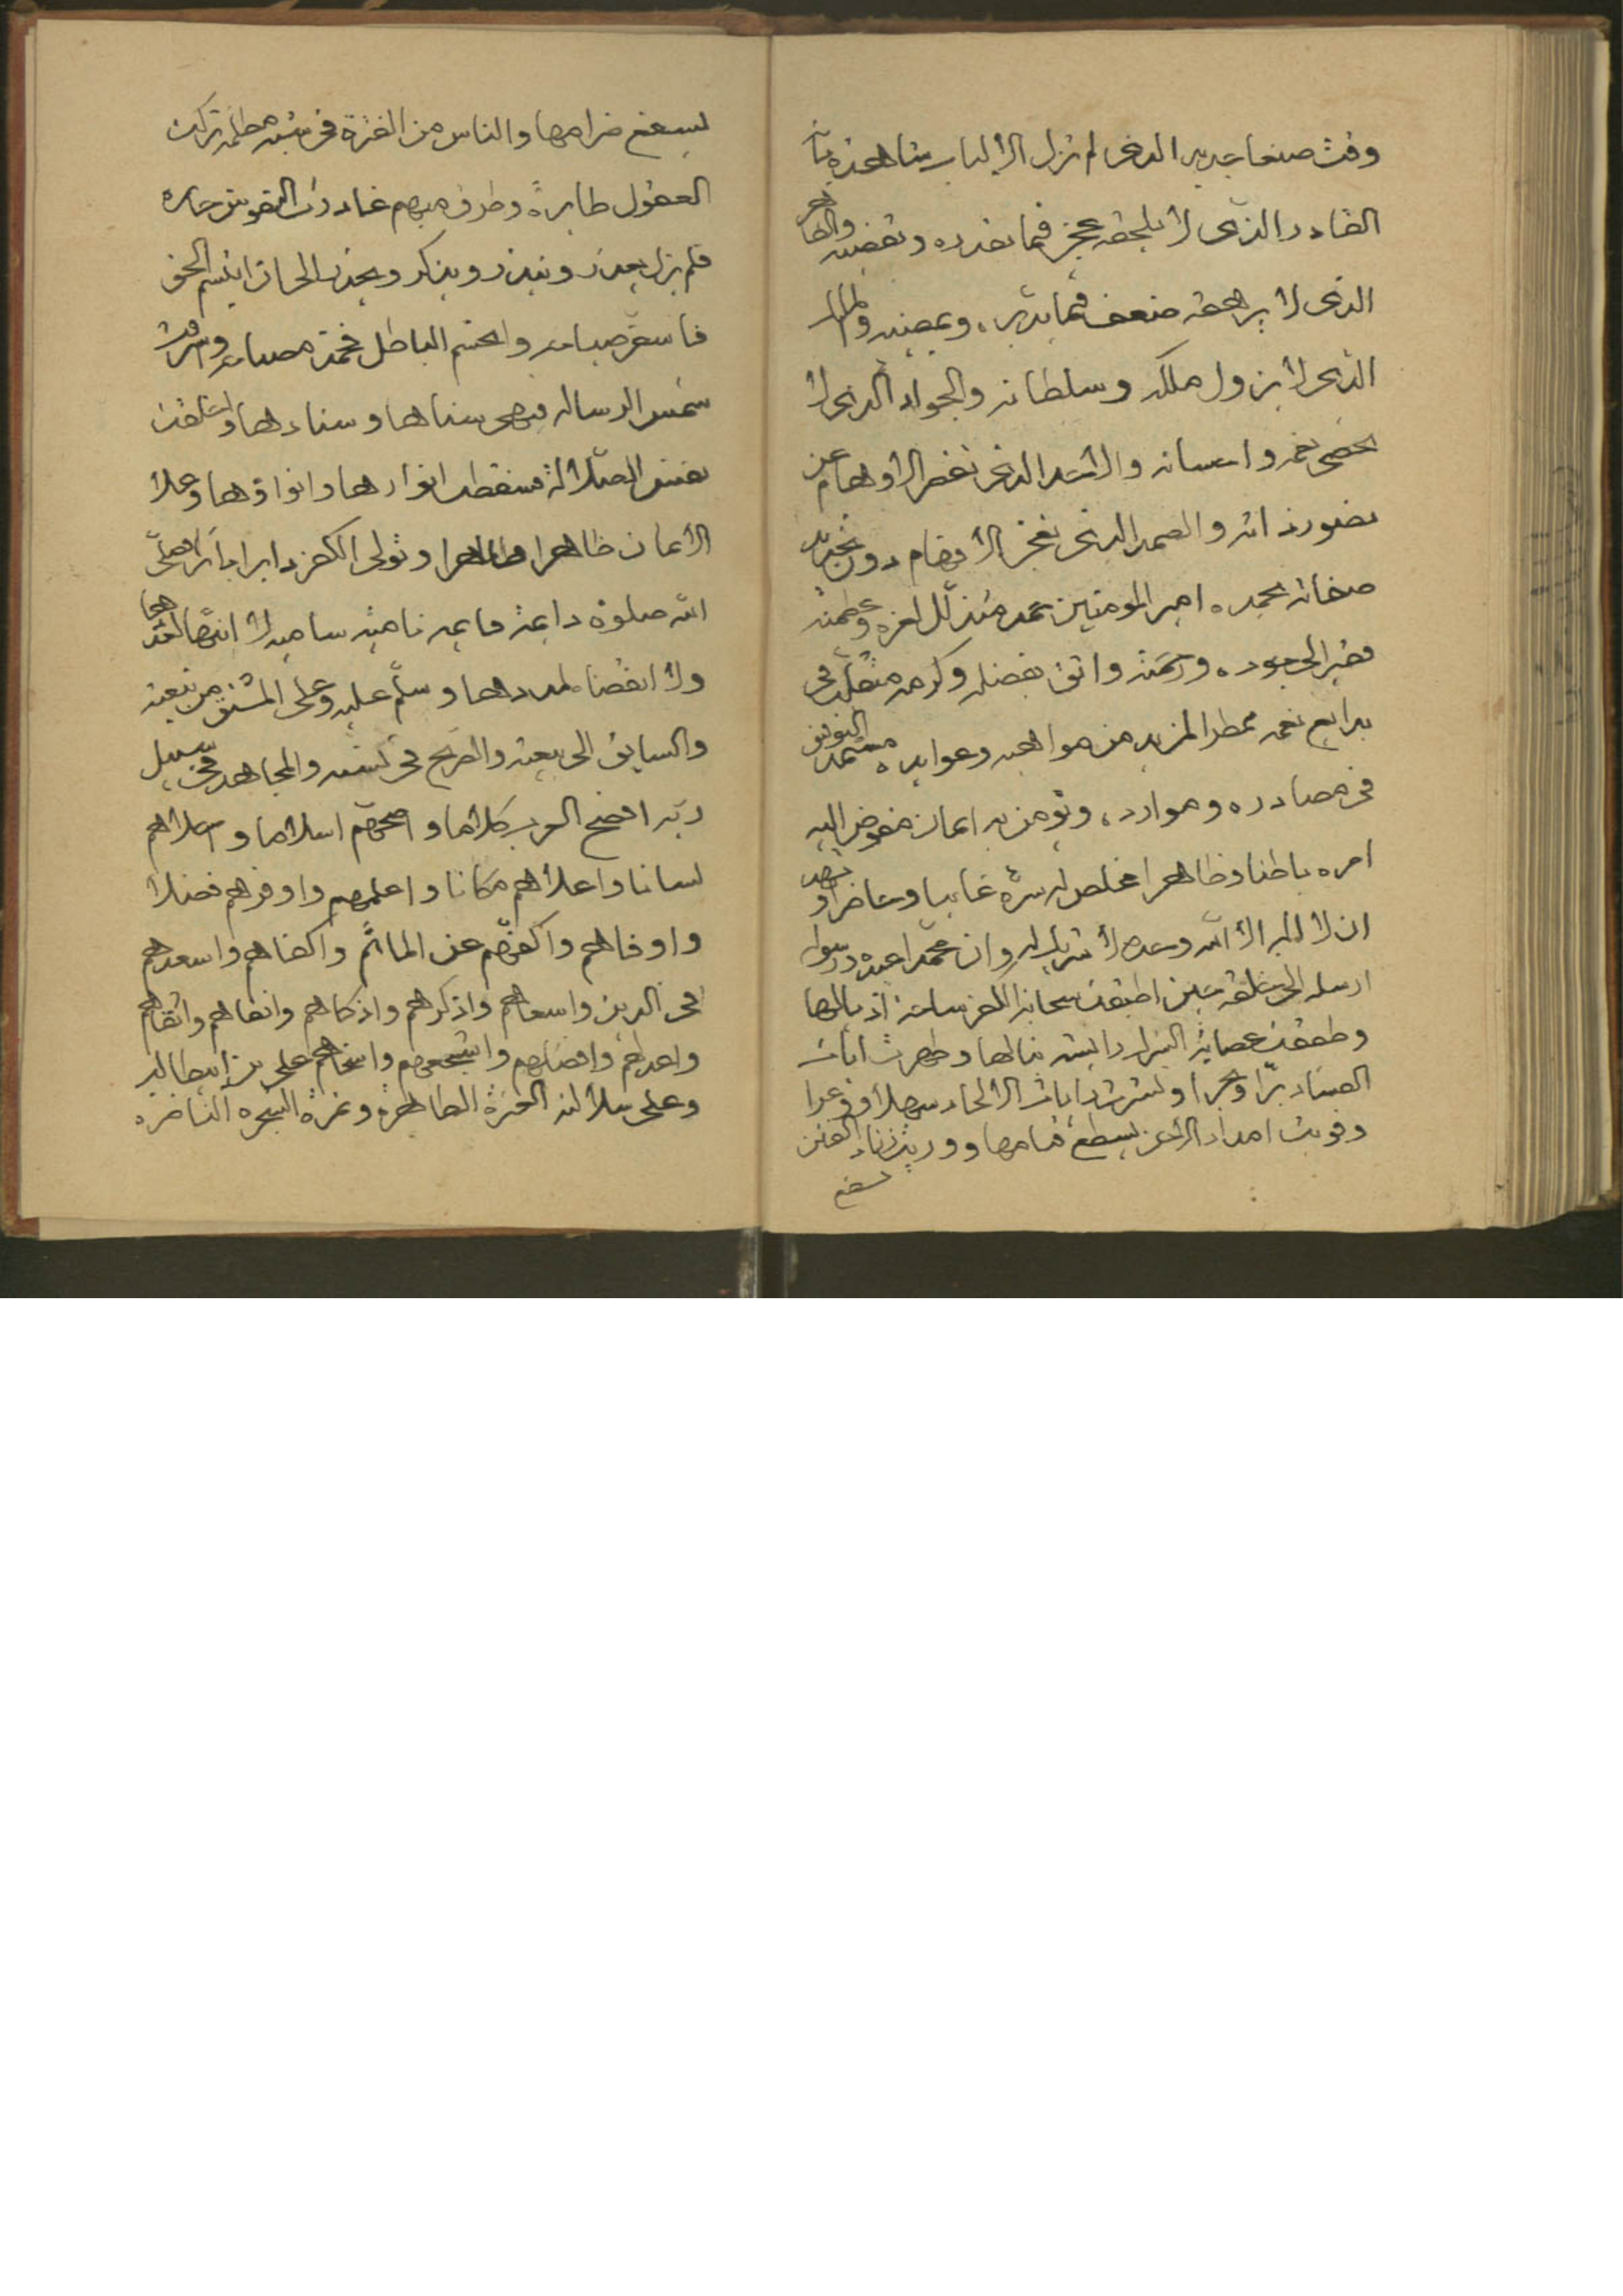 القادر الذى لا يلحقه عجز فيما يقدره ويقضيه والقاهر
الذى لا يرهقه ضعف فيما يدبره ويمضيه والملك
الذى لا يزول ملكه وسلطانه والجواد الذى لا
يحصى نعمه واحسانه والاحد الذى تقصر الاوهام عن
تصور ذاته والصمد الذى تعجز الافهام دون تحديد
صفاته يحمده امير المومنين حمد متذلل لعزه وعظمته
فقير الى جوده ورحمته واثق بفضله وكرمه متقلب فى
بدايع نعمه ممطر المزيد من مواهبه وعوايده مستمد التوفيق
فى مصادره وموارده ويؤمن به ايمان مفوض اليه
امره باطنا وظاهرا مخلص له سره غايبا وحاضرا ويشهد
ان لا اله الا الله وحده لا شريك له وان محمدا عبده ورسوله
ارسله الى خلقه حين اطبقت سحابة الكفر ساحبة اذيالها
وطفقت عصابة الشرك رايشة نبالها وظهرت ايات
الفساد برا وبحرا ونشرت رايات الالحاد سهلا ووعرا
وقويت امداد الزيغ يسطع قتامها ووريت زناد الفتن
يسفع
يسفع ضرامها والناس من الفترة فى شبه مظلمة تركت
العقول طايرة وطرق مبهم غادرت النفوس حايره
فلم يزل يعذر وينذر ويذكر ويحذر الى ان ابتسم الحق
فاسفر صباحه واحتشم الباطل فخمد مصباحه واشرقت
شمس الرساله فبهر سناها وسناءها واختلفت
نفس الضلالة فسقطت انوارها وانواؤها وعلا
الايمان ظاهرا وتولى الكفر دابرا باترا صلى
الله صلوة دايمة قايمة نامية سامية لا انتها لعددها
ولا انقضا لمددها وسلم عليه وعلى المشتق من نبعته
والسابق الى بيعته والصريح فى نسبه والمجاهد فى سبيل
ربه افصح العرب كلاما واصحهم اسلاما واحلاهم
لسانا واعلاهم مكانا واعلمهم واوفرهم فضلا
واوفاهم واكفهم عن الماثم واكفاهم واسعدهم
فى الدين واسعاهم واذكرهم واذكاهم وانقاهم واتقاهم
واعدلهم وافضلهم واشجعهم واسخاهم على بن ابيطالب
وعلى سلالته العترة الطاهرة وثمرة الشجره الناضره